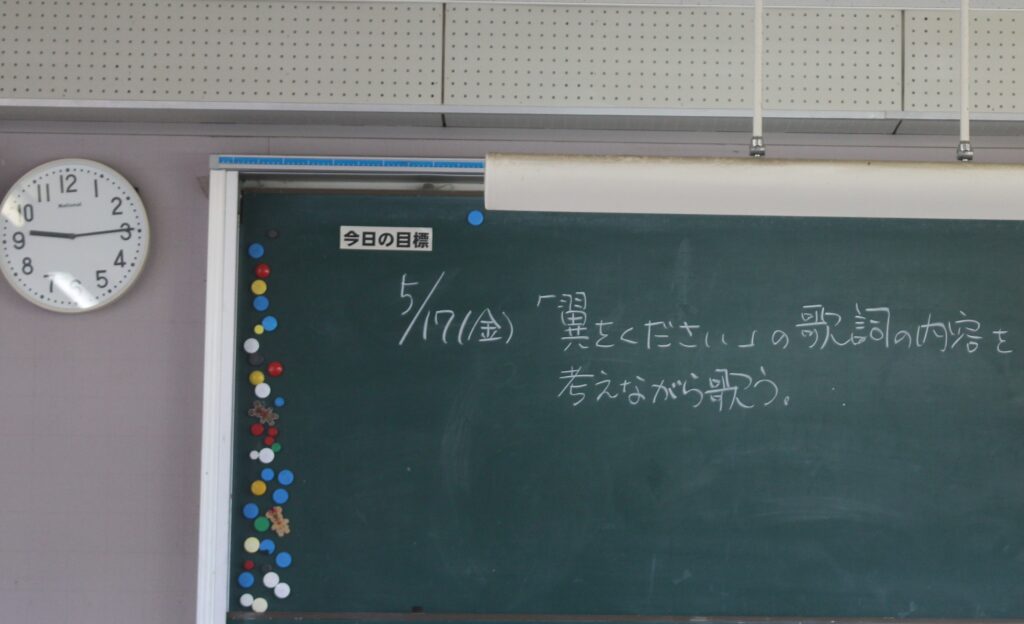 12
1
2
3
4
5
6
7
8
9
10
11
National
今日の目標
5/17(金)「翼をください」の歌詞の内容を
考えながら歌う。